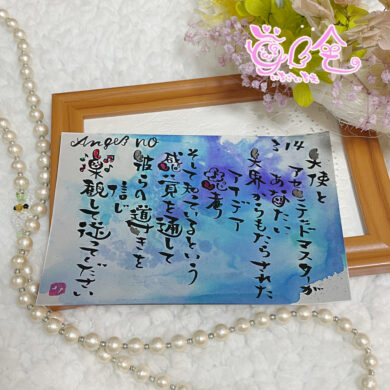 Angel no
314
天使と
アセンデッドマスターが
あなたに
天界からもたらされた
アイデアや
思考
そして知っているという
感覚を通して
彼らの導きを
信じ
楽観して従ってください